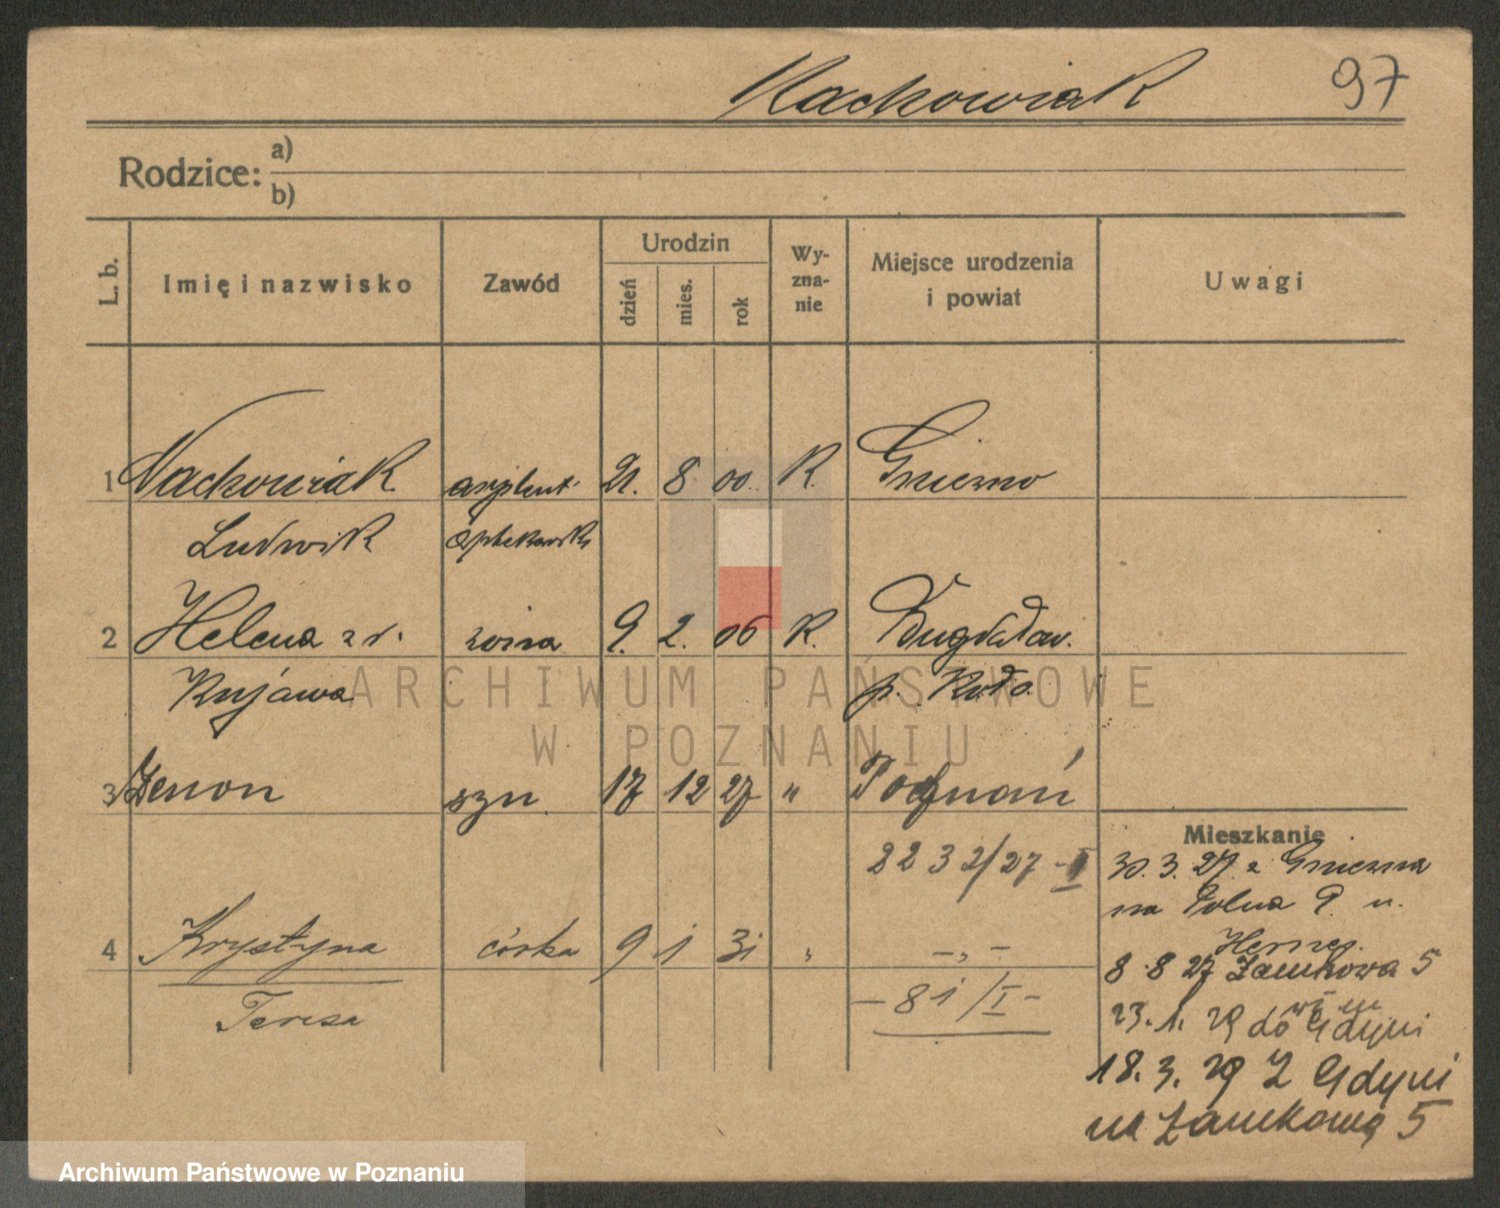 Nackowiak 97
Rodzice: a)
b)
L. b. Imię i nazwisko Zawód Urodzin dzień mies. rok Wy-zna-nie Miejsce urodzenia i powiat Uwagi
1 Nackowiak asystent 21. 8 00. R. Gniezno
Ludwik
2 Helena z d. żona 9. 2. 06 R.
Kujawa p. Koło
ARCHIWUM PAŃSTWOWE
W POZNANIU
3 Zenon syn 17 12 27 " Poznań
2232/27
Mieszkanie
30.3.27 z Gniezna
na Polna 9 u.
4 Krystyna córka 9 1 31 " - " -
8 8 27 Zamkowa 5
Teresa - 81/I -
23.1.29 do Gdyni
18.3.29 Z Gdyni
na Zamkową 5
Archiwum Państwowe w Poznaniu